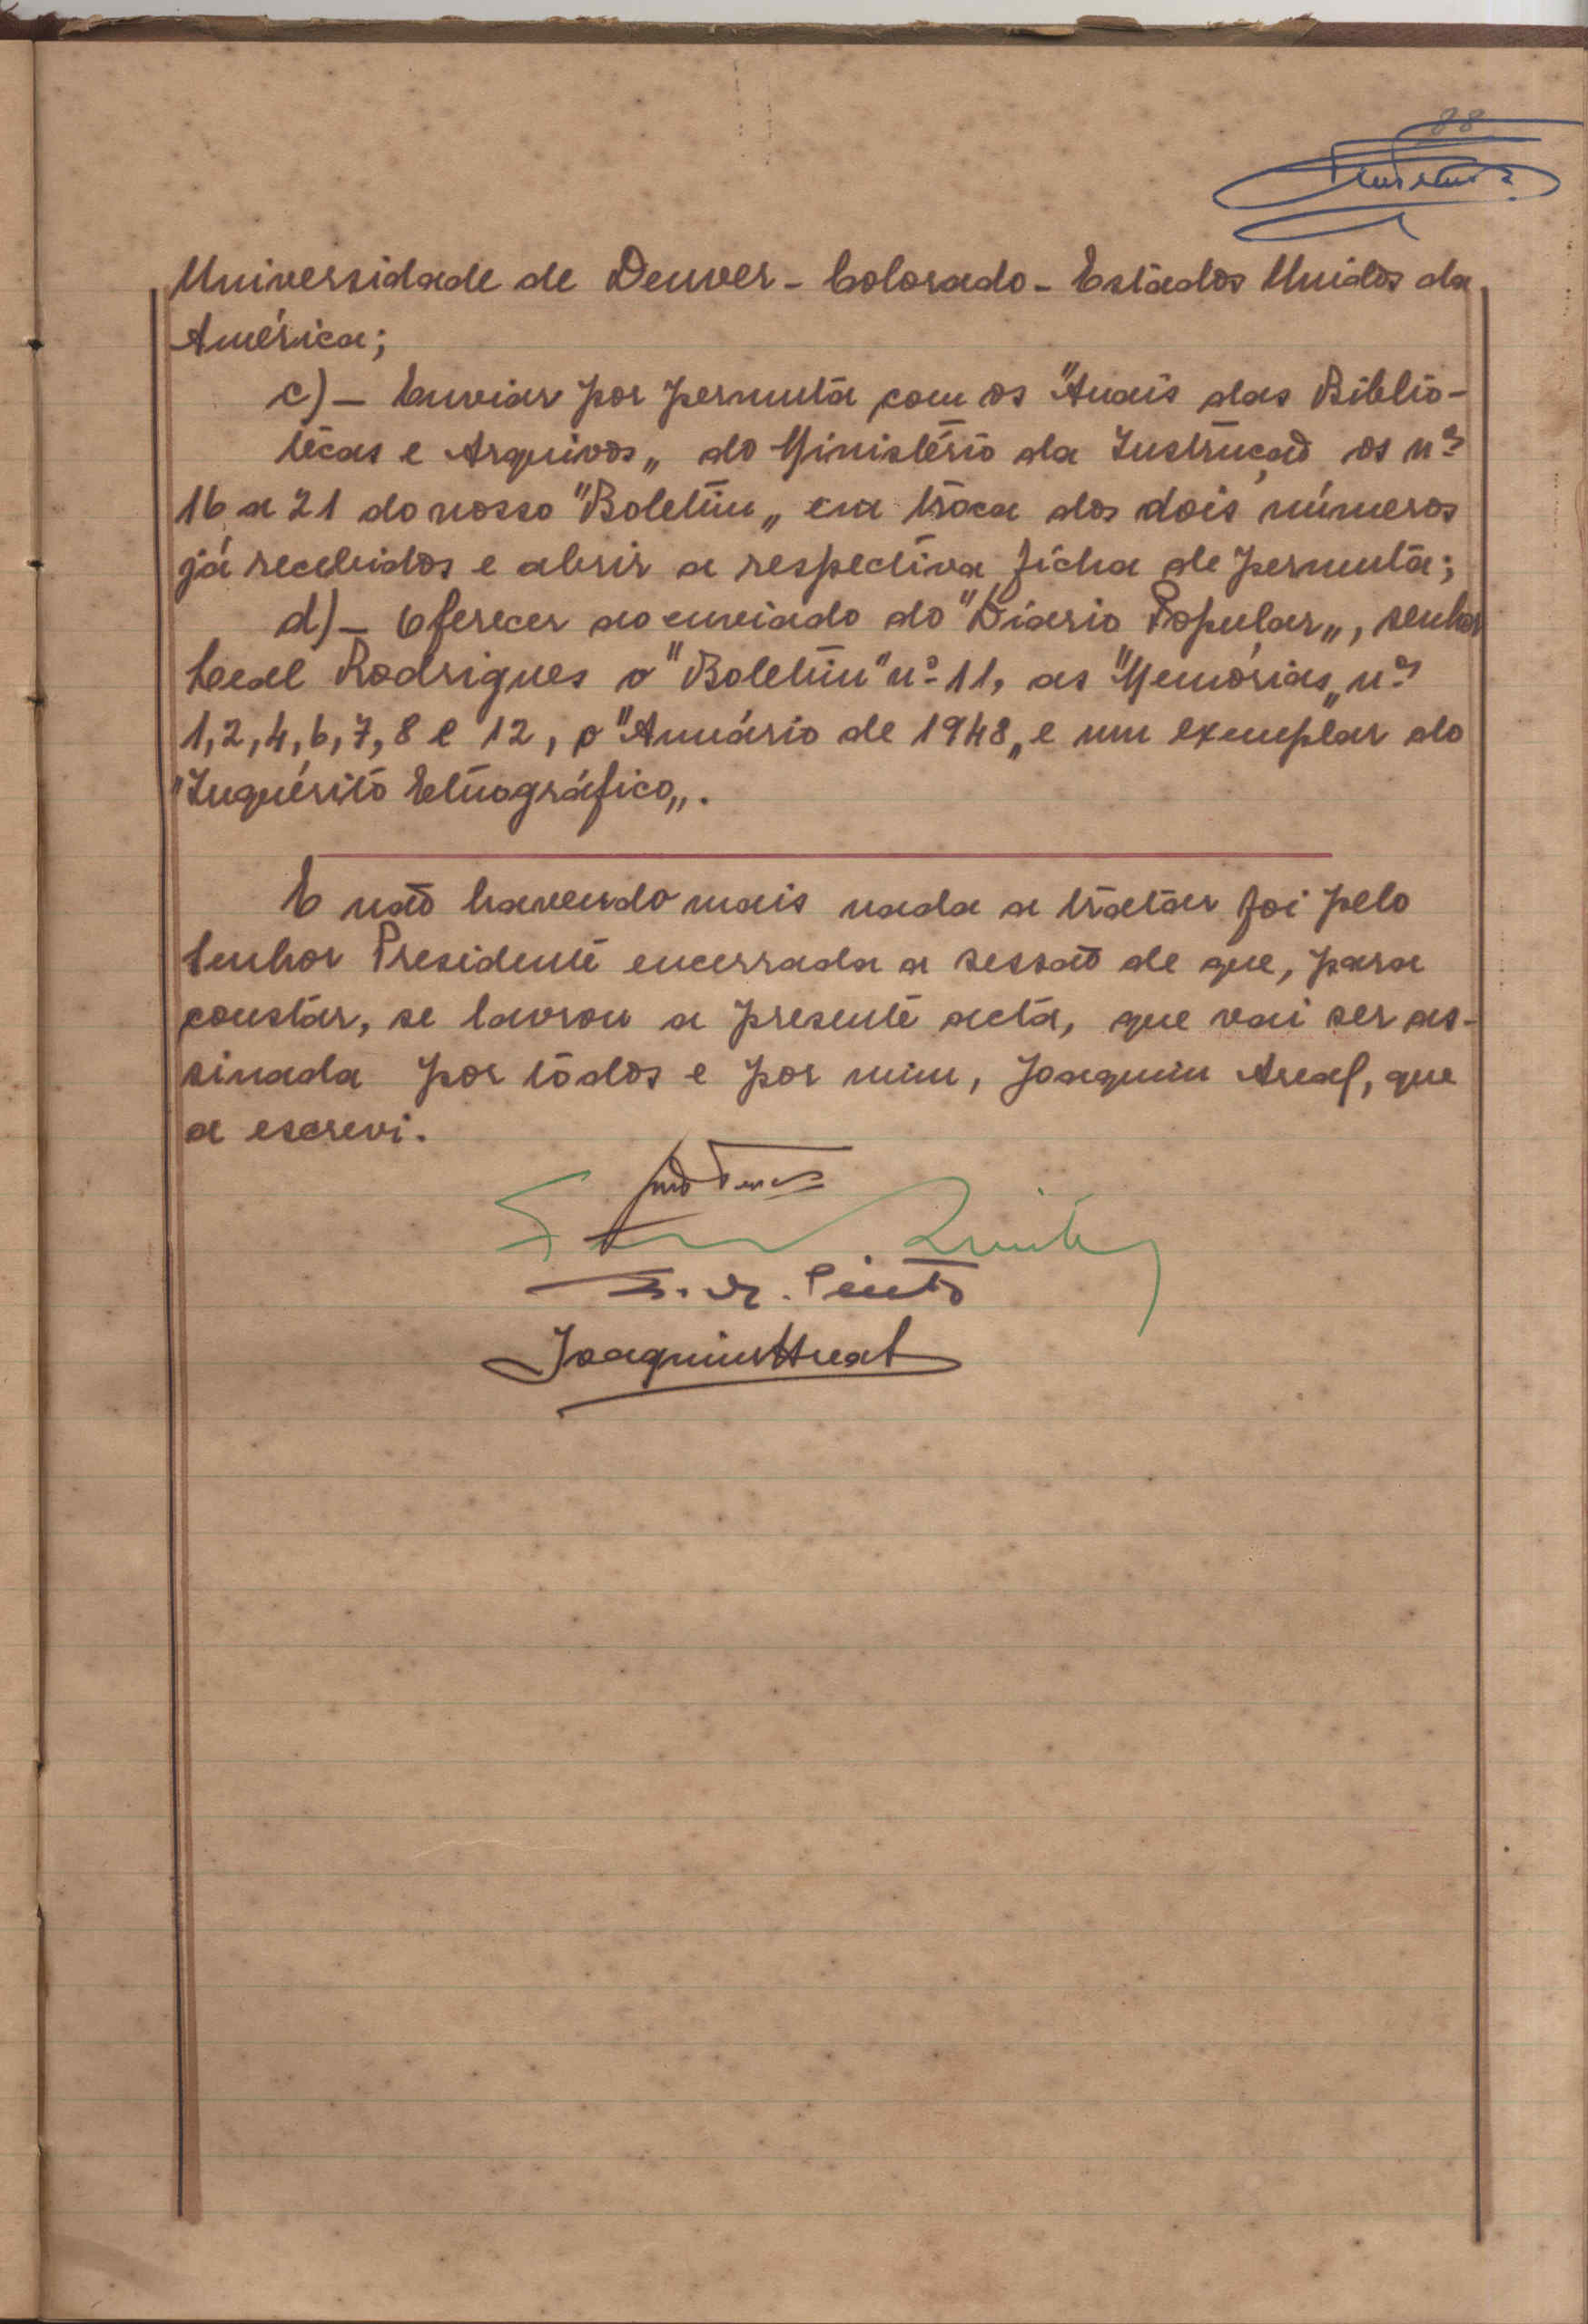 88
Universidade de Denver - Colorado - Estados Unidos da
América;
c) - Enviar por permuta com os "Anais das Biblio-
técas e Arquivos„ do Ministério da Instrução os nos
16 a 21 do nosso "Boletim„ em troca dos dois números
já recebidos e abrir a respectiva ficha de permuta;
d) - Oferecer ao enviado do "Diario Popular„, senhor
Leal Rodrigues o "Boletim" nº 11, as "Memórias„ nos
1, 2, 4, 6, 7, 8 e 12, o "Anuário de 1948„ e um exemplar do
"Inquérito Etnográfico„.
E não havendo mais nada a tratar foi pelo
Senhor Presidente encerrada a sessão de que, para
constar, se lavrou a presente acta, que vai ser as-
sinada por todos e por mim, Joaquim Areal, que
a escrevi.
Pinto
Joaquim Areal